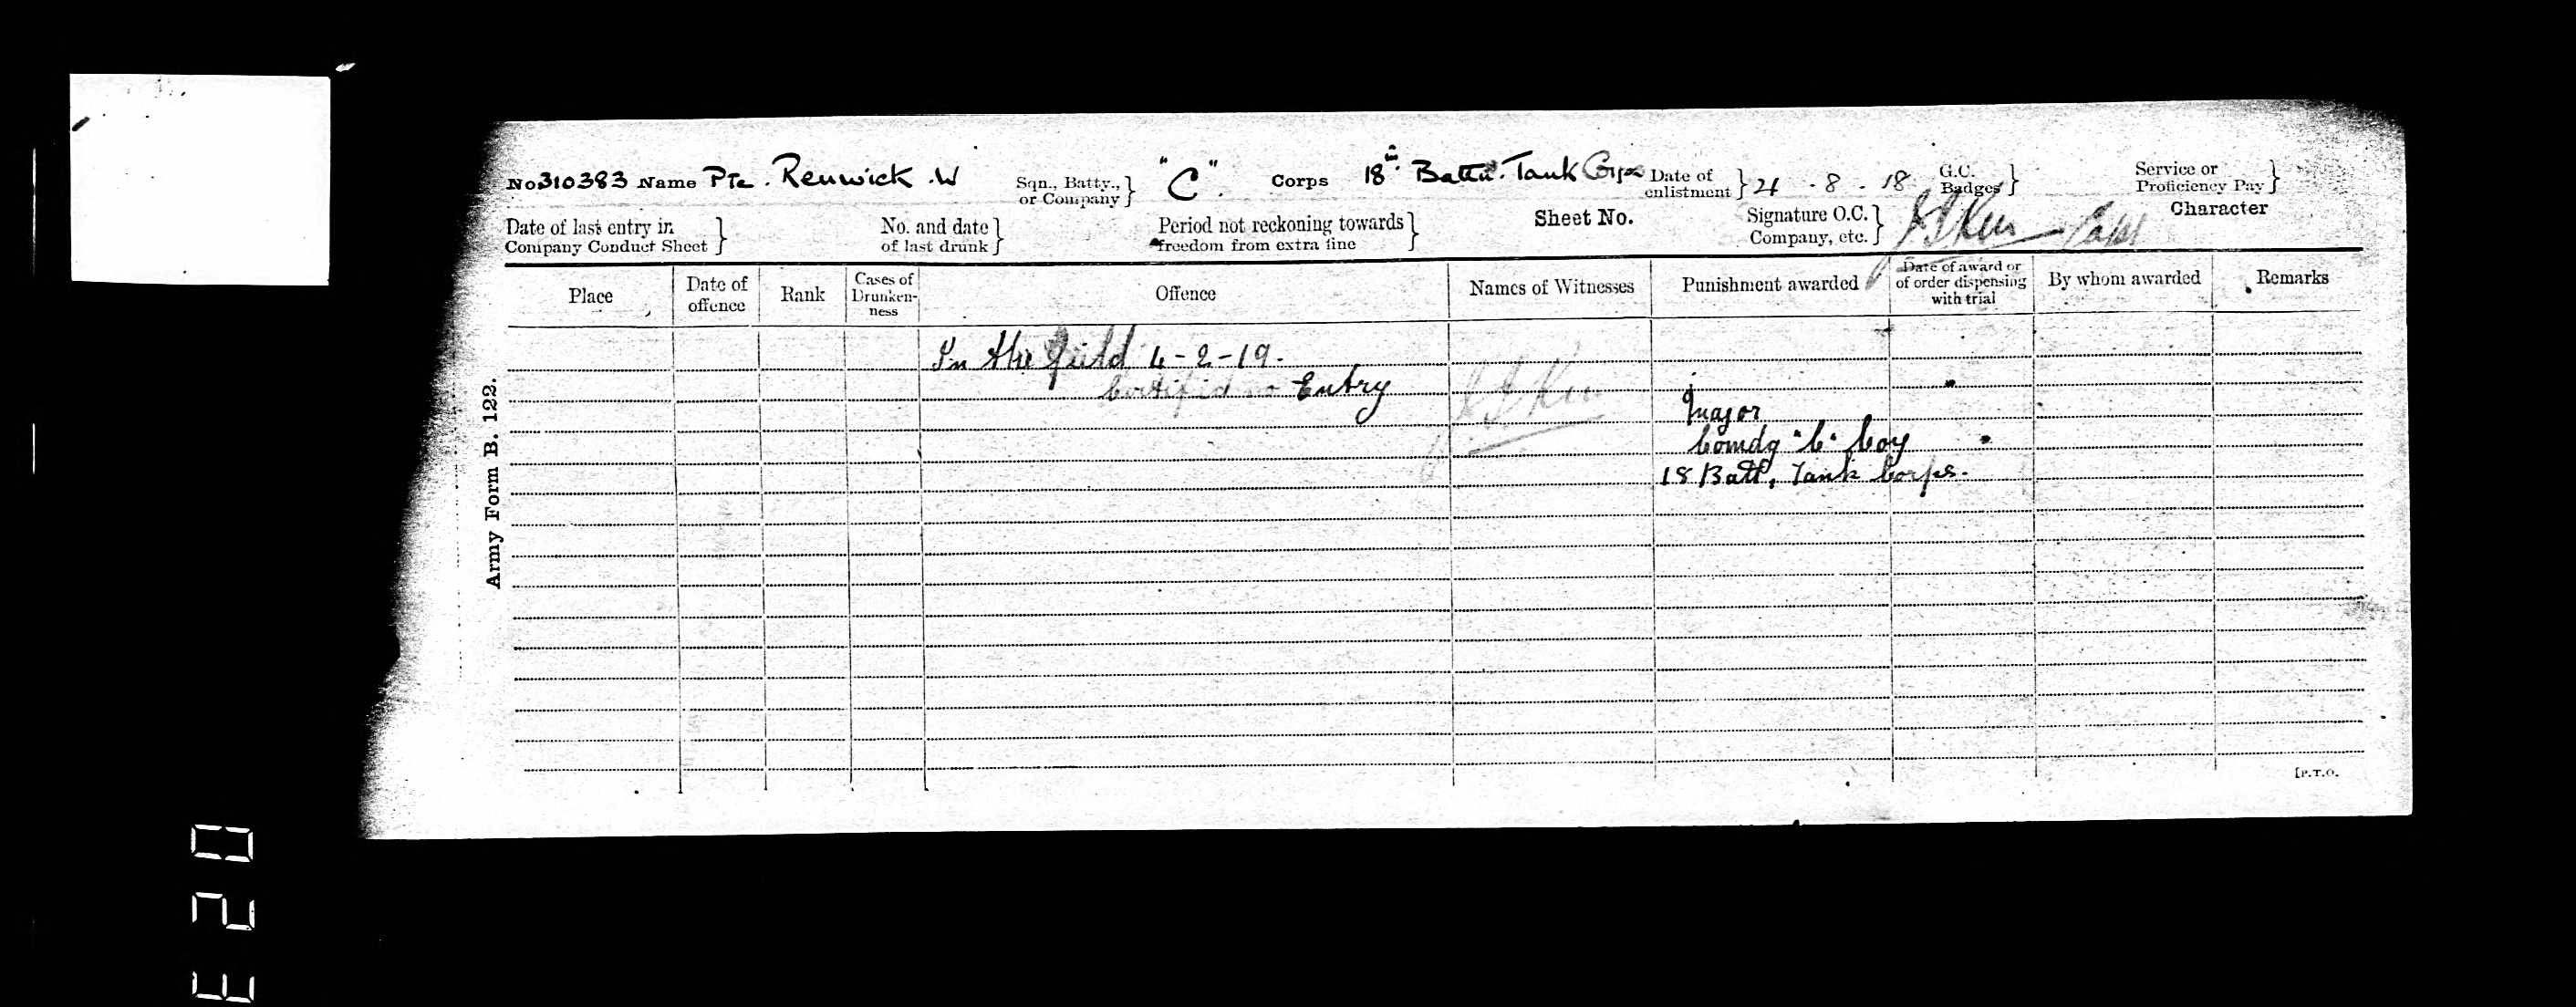 No 310383 Name Pte. Renwick. W Sqn., Batty., or Company } "C". Corps 18th Battn. Tank Corps Date of enlistment } 21 . 8 . 18 G.C. Badges } Service or Proficiency Pay }
Date of last entry in Company Conduct Sheet } No. and date of last drunk } Period not reckoning towards freedom from extra fine } Sheet No. Signature O.C. Company, etc. } Capt Character
Place Date of offence Rank Cases of Drunkenness Offence Names of Witnesses Punishment awarded Date of award or of order dispensing with trial By whom awarded Remarks
In the field 4-2-19.
Certified no Entry
Major
Comdg "C" Coy
18 Batt, Tank Corps.
Army Form B. 122.
[P.T.O.